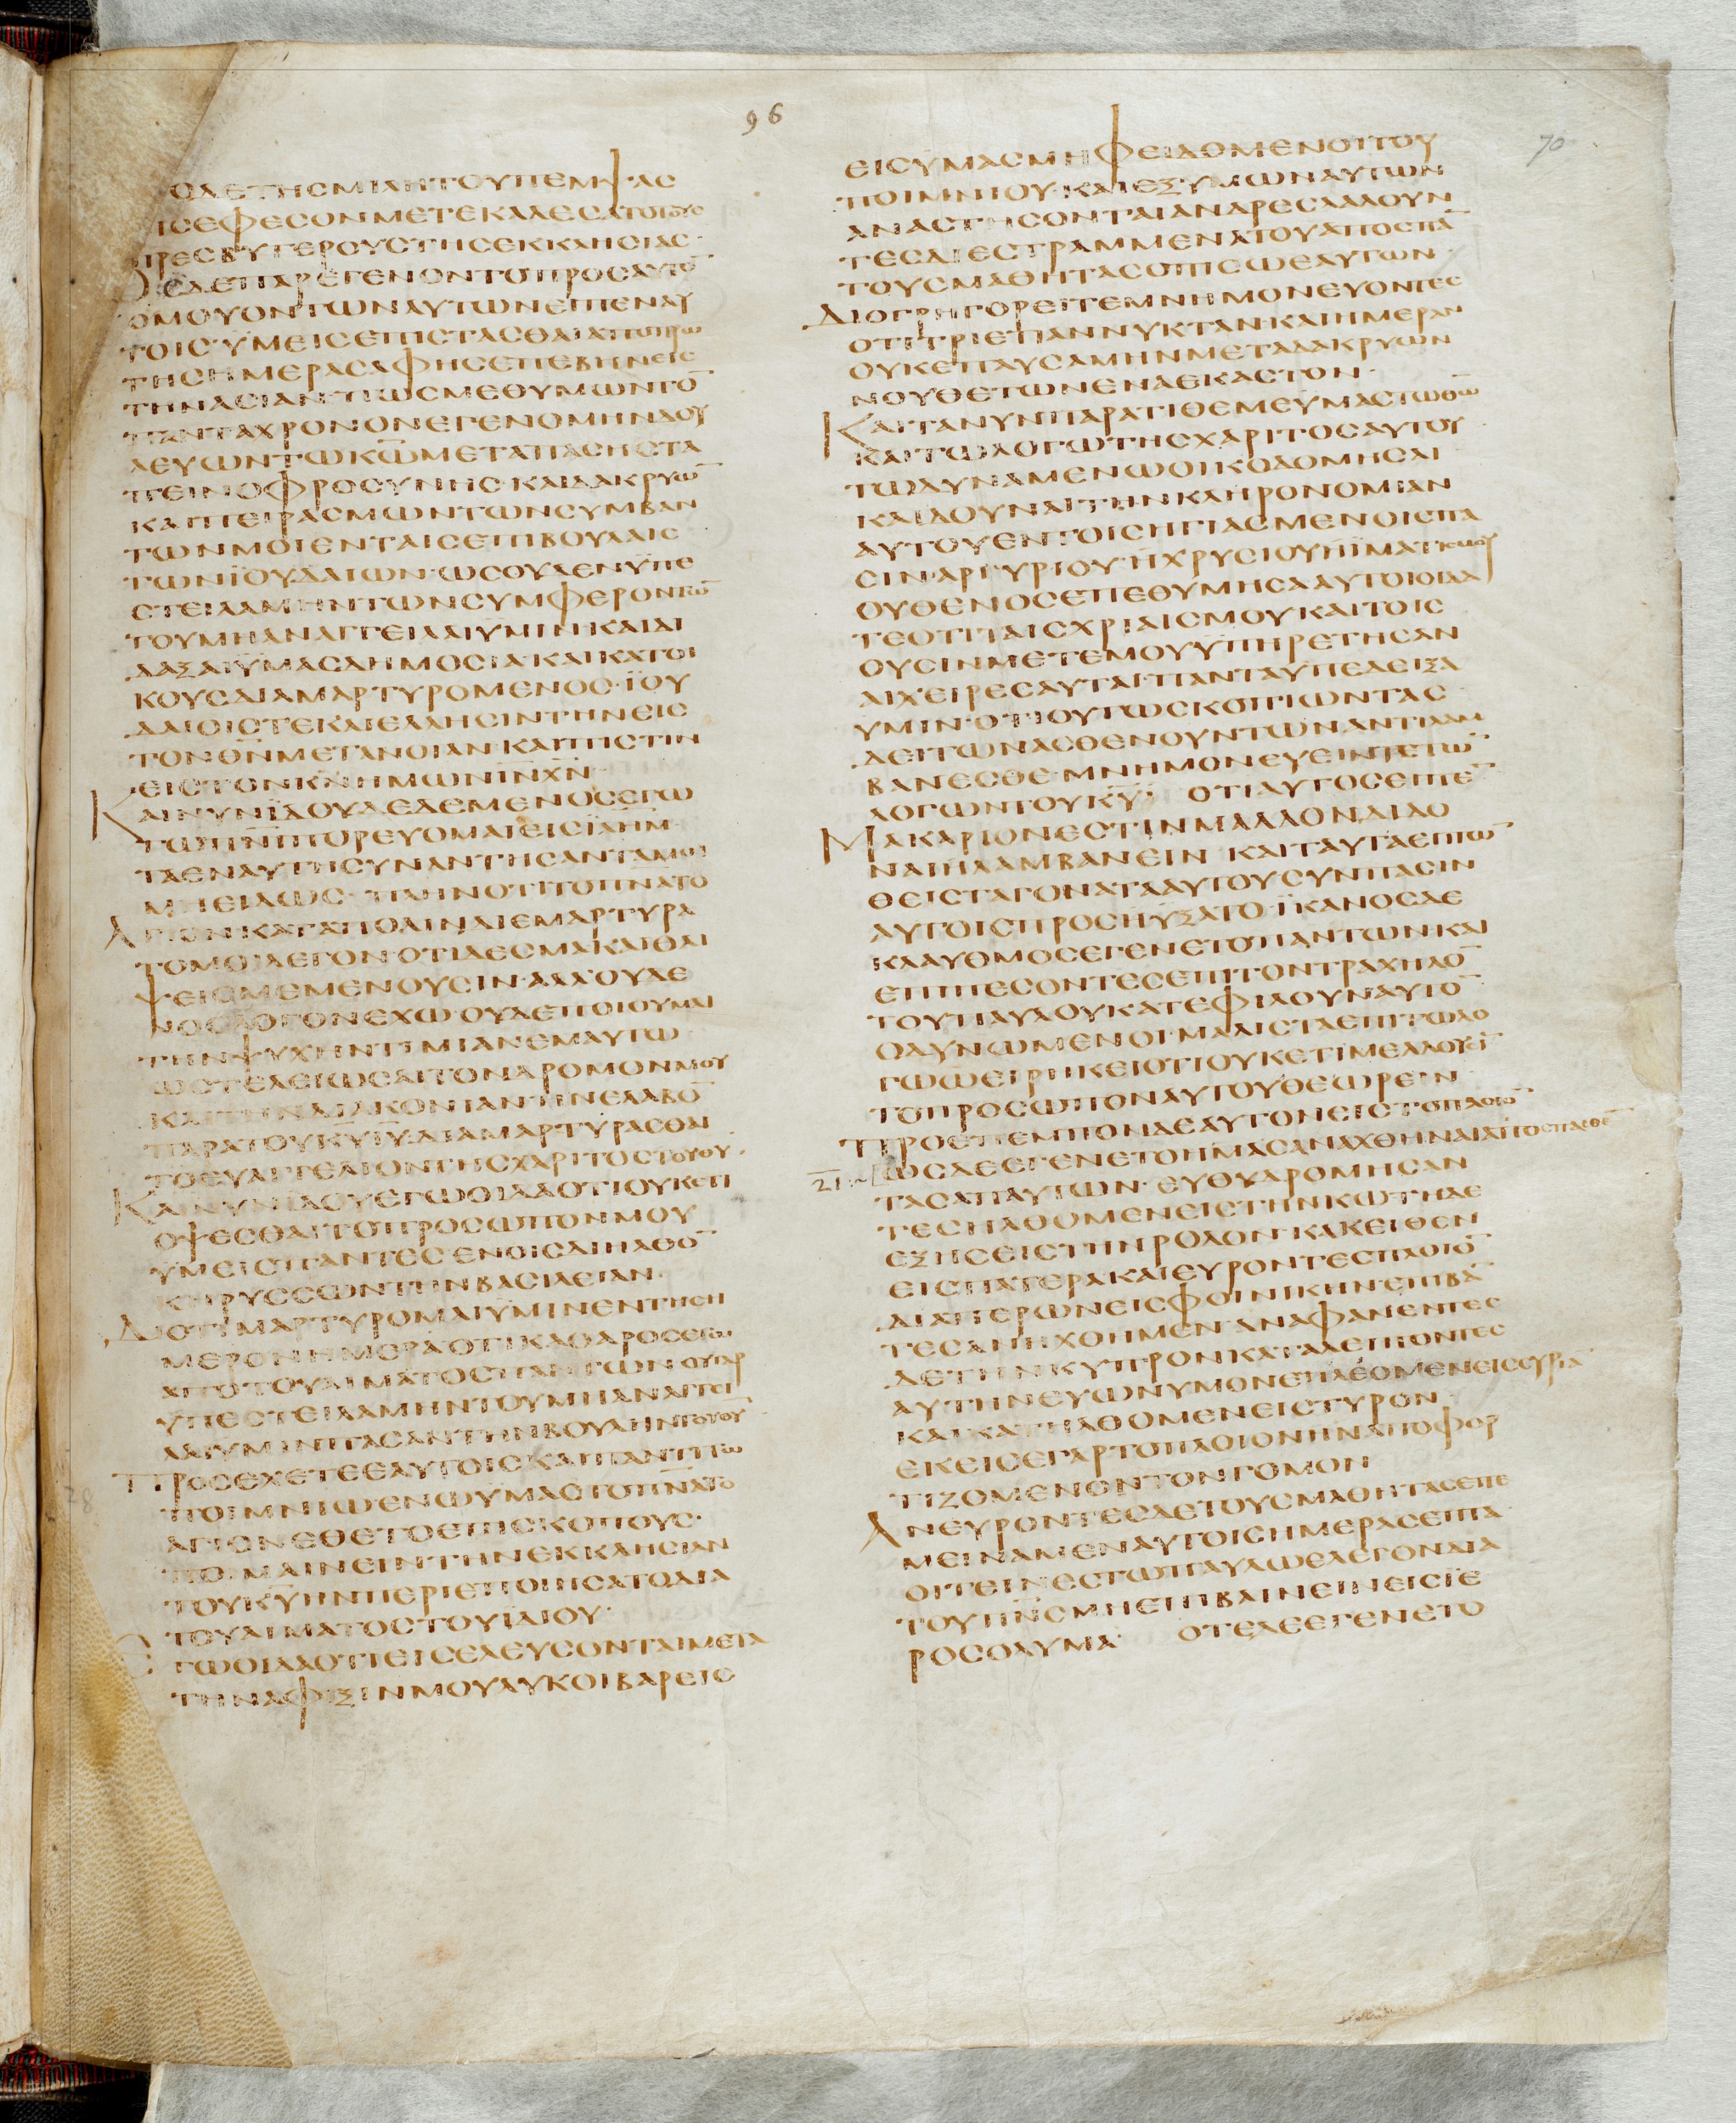 ΟΔΕΤΗϹΜΙΛΗΤΟΥΠΕΜΨΑϹ
ΙϹΕΦΕϹΟΝΜΕΤΕΚΑΛΕϹΑΤΟΤΟΥϹ
ΠΡΕϹΒΥΤΕΡΟΥϹΤΗϹΕΚΚΛΗϹΙΑϹ·
ΩϹΔΕΠΑΡΕΓΕΝΟΝΤΟΠΡΟϹΑΥΤΟ̅
ΟΜΟΥΟΝΤΩΝΑΥΤΩΝΕΙΠΕΝΑΥ
ΤΟΙϹ·ΥΜΕΙϹΕΠΙϹΤΑϹΘΑΙΑΠΟΠΡΩ
ΤΗϹΗΜΕΡΑϹΑΦΗϹΕΠΕΒΗΝΕΙϹ
ΤΗΝΑϹΙΑΝ·ΠΩϹΜΕΘΥΜΩΝΤΟ̅
ΠΑΝΤΑΧΡΟΝΟΝΕΓΕΝΟΜΗΝΔΟΥ
ΛΕΥΩΝΤΩΚ̅Ω̅ΜΕΤΑΠΑϹΗϹΤΑ
ΠΕΙΝΟΦΡΟϹΥΝΗϹ·ΚΑΙΔΑΚΡΥΩ̅
ΚΑΙΠΕΙΡΑϹΜΩΝΤΩΝϹΥΜΒΑΝ
ΤΩΝΜΟΙΕΝΤΑΙϹΕΠΙΒΟΥΛΑΙϹ
ΤΩΝΪΟΥΔΑΙΩΝ·ΩϹΟΥΔΕΝΥΠΕ
ϹΤΕΙΛΑΜΗΝΤΩΝϹΥΜΦΕΡΟΝΤΩ̅
ΤΟΥΜΗΑΝΑΓΓΕΙΛΑΙΥΜΙΝΚΑΙΔΙ
ΔΑΞΑΙΥΜΑϹΔΗΜΟϹΙΑ·ΚΑΙΚΑΤΟΙ
ΚΟΥϹΔΙΑΜΑΡΤΥΡΟΜΕΝΟϹ·ΪΟΥ
ΔΑΙΟΙϹΤΕΚΑΙΕΛΛΗϹΙΝΤΗΝΕΙϹ
ΤΟΝΘ̅Ν̅ΜΕΤΑΝΟΙΑΝ·ΚΑΙΠΙϹΤΙΝ
ΕΙϹΤΟΝΚ̅Ν̅ΗΜΩΝΙ̅Ν̅Χ̅Ν̅·
ΚΑΙΝΥΝΪΔΟΥΔΕΔΕΜΕΝΟϹΕΓΩ
ΤΩΠ̅Ν̅Ι̅ΠΟΡΕΥΟΜΑΙΕΙϹΙ̅Λ̅Η̅Μ̅·
ΤΑΕΝΑΥΤΗϹΥΝΑΝΤΗϹΑΝΤΑΜΟΙ
ΜΗΕΙΔΩϹ·ΠΛΗΝΟΤΙΤΟΠ̅Ν̅Α̅ΤΟ
ΑΓΙΟΝΚΑΤΑΠΟΛΙΝΔΙΕΜΑΡΤΥΡΑ
ΤΟΜΟΙΛΕΓΟΝ·ΟΤΙΔΕϹΜΑΚΑΙΘΛΙ
ΨΕΙϹΜΕΜΕΝΟΥϹΙΝ·ΑΛΛΟΥΔΕ
ΝΟϹΛΟΓΟΝΕΧΩ·ΟΥΔΕΠΟΙΟΥΜΑΙ
ΤΗΝΨΥΧΗΝΤΙΜΙΑΝΕΜΑΥΤΩ
ΩϹΤΕΛΕΙΩϹΑΙΤΟΝΔΡΟΜΟΝΜΟΥ
ΚΑΙΤΗΝΔΙΑΚΟΝΙΑΝΤΗΝΕΛΑΒΟ̅
ΠΑΡΑΤΟΥΚ̅Υ̅Ι̅Υ̅·ΔΙΑΜΑΡΤΥΡΑϹΘΑΙ
ΤΟΕΥΑΓΓΕΛΙΟΝΤΗϹΧΑΡΙΤΟϹΤΟΥΘ̅Υ̅·
ΚΑΙΝΥΝΪΔΟΥΕΓΩΟΙΔΑΟΤΙΟΥΚΕΤΙ
ΟΨΕϹΘΑΙΤΟΠΡΟϹΩΠΟΝΜΟΥ
ΥΜΕΙϹΠΑΝΤΕϹΕΝΟΙϹΔΙΗΛΘΟ̅
ΚΗΡΥϹϹΩΝΤΗΝΒΑϹΙΛΕΙΑΝ·
ΔΙΟΤΙΜΑΡΤΥΡΟΜΑΙΥΜΙΝΕΝΤΗϹΗ
ΜΕΡΟΝΗΜΕΡΑΟΤΙΚΑΘΑΡΟϹΕΓΩ
ΑΠΟΤΟΥΑΙΜΑΤΟϹΠΑΝΤΩΝΟΥΓΑΡ
ΥΠΕϹΤΕΙΛΑΜΗΝΤΟΥΜΗΑΝΑΓΓΕΙ
ΛΑΙΥΜΙΝΠΑϹΑΝΤΗΝΒΟΥΛΗΝΤΟΥΘ̅Υ̅
ΠΡΟϹΕΧΕΤΕΕΑΥΤΟΙϹΚΑΙΠΑΝΤΙΤΩ
ΠΟΙΜΝΙΩ·ΕΝΩΥΜΑϹΤΟΠ̅Ν̅Α̅ΤΟ
ΑΓΙΟΝΕΘΕΤΟΕΠΙϹΚΟΠΟΥϹ·
ΠΟΙΜΑΙΝΕΙΝΤΗΝΕΚΚΛΗϹΙΑΝ
ΤΟΥΚ̅Υ̅ΗΝΠΕΡΙΕΠΟΙΗϹΑΤΟΔΙΑ
ΤΟΥΑΙΜΑΤΟϹΤΟΥΪΔΙΟΥ·
ΕΓΩΟΙΔΑΟΤΙΕΙϹΕΛΕΥϹΟΝΤΑΙΜΕΤΑ
ΤΗΝΑΦΙΞΙΝΜΟΥΛΥΚΟΙΒΑΡΕΙϹ
96
70
ΕΙϹΥΜΑϹΜΗΦΕΙΔΟΜΕΝΟΙΤΟΥ
ΠΟΙΜΝΙΟΥ·ΚΑΙΕΞΥΜΩΝΑΥΤΩΝ
ΑΝΑϹΤΗϹΟΝΤΑΙΑΝΔΡΕϹΛΑΛΟΥΝ
ΤΕϹΔΙΕϹΤΡΑΜΜΕΝΑΤΟΥΑΠΟϹΠΑ̅
ΤΟΥϹΜΑΘΗΤΑϹΟΠΙϹΩΕΑΥΤΩΝ·
ΔΙΟΓΡΗΓΟΡΕΙΤΕΜΝΗΜΟΝΕΥΟΝΤΕϹ
ΟΤΙΤΡΙΕΤΙΑΝΝΥΚΤΑΝ·ΚΑΙΗΜΕΡΑΝ
ΟΥΚΕΠΑΥϹΑΜΗΝΜΕΤΑΔΑΚΡΥΩΝ
ΝΟΥΘΕΤΩΝΕΝΑΕΚΑϹΤΟΝ·
ΚΑΙΤΑΝΥΝΠΑΡΑΤΙΘΕΜΕΥΜΑϹΤΩΘ̅Ω̅
ΚΑΙΤΩΛΟΓΩΤΗϹΧΑΡΙΤΟϹΑΥΤΟΥ
ΤΩΔΥΝΑΜΕΝΩΟΙΚΟΔΟΜΗϹΑΙ
ΚΑΙΔΟΥΝΑΙΤΗΝΚΛΗΡΟΝΟΜΙΑΝ
ΑΥΤΟΥΕΝΤΟΙϹΗΓΙΑϹΜΕΝΟΙϹΠΑ
ϹΙΝ·ΑΡΓΥΡΙΟΥΗΧΡΥϹΙΟΥΗΪΜΑΤΙϹΜΟΥ
ΟΥΘΕΝΟϹΕΠΕΘΥΜΗϹΑΑΥΤΟΙΟΙΔΑ
ΤΕΟΤΙΤΑΙϹΧΡΙΑΙϹΜΟΥΚΑΙΤΟΙϹ
ΟΥϹΙΝΜΕΤΕΜΟΥΥΠΗΡΕΤΗϹΑΝ
ΑΙΧΕΙΡΕϹΑΥΤΑΙ·ΠΑΝΤΑΥΠΕΔΕΙΞΑ
ΥΜΙΝ·ΟΤΙΟΥΤΩϹΚΟΠΙΩΝΤΑϹ
ΔΕΙΤΩΝΑϹΘΕΝΟΥΝΤΩΝΑΝΤΙΛΑΜ
ΒΑΝΕϹΘΕ·ΜΝΗΜΟΝΕΥΕΙΝΤΕΤΩ̅
ΛΟΓΩΝΤΟΥΚ̅Υ̅Ι̅Υ̅ ΟΤΙΑΥΤΟϹΕΙΠΕ̅
ΜΑΚΑΡΙΟΝΕϹΤΙΝΜΑΛΛΟΝΔΙΔΟ
ΝΑΙΗΛΑΜΒΑΝΕΙΝ ΚΑΙΤΑΥΤΑΕΙΠΩ̅
ΘΕΙϹΤΑΓΟΝΑΤΑΑΥΤΟΥϹΥΝΠΑϹΙΝ
ΑΥΤΟΙϹΠΡΟϹΗΥΞΑΤΟ·ΪΚΑΝΟϹΔΕ
ΚΛΑΥΘΜΟϹΕΓΕΝΕΤΟΠΑΝΤΩΝ·ΚΑΙ
ΕΠΙΠΕϹΟΝΤΕϹΕΠΙΤΟΝΤΡΑΧΗΛΟ̅
ΤΟΥΠΑΥΛΟΥΚΑΤΕΦΙΛΟΥΝΑΥΤΟ̅
ΟΔΥΝΩΜΕΝΟΙ·ΜΑΛΙϹΤΑΕΠΙΤΩΛΟ
ΓΩΩΕΙΡΗΚΕΙΟΤΙΟΥΚΕΤΙΜΕΛΛΟΥϹΙ̅
ΤΟΠΡΟϹΩΠΟΝΑΥΤΟΥΘΕΩΡΕΙΝ·
ΠΡΟΕΠΕΜΠΟΝΔΕΑΥΤΟΝΕΙϹΤΟΠΛΟΙΟ̅
21 ΩϹΔΕΕΓΕΝΕΤΟΗΜΑϹΑΝΑΧΘΗΝΑΙΑΠΟϹΠΑϹΘΕ̅
ΤΑϹΑΠΑΥΤΩΝ·ΕΥΘΥΔΡΟΜΗϹΑΝ
ΤΕϹΗΛΘΟΜΕΝΕΙϹΤΗΝΚΩΤΗΔΕ
ΕΞΗϹΕΙϹΤΗΝΡΟΔΟΝ·ΚΑΚΕΙΘΕΝ
ΕΙϹΠΑΤΕΡΑ·ΚΑΙΕΥΡΟΝΤΕϹΠΛΟΙΟ̅
ΔΙΑΠΕΡΩΝΕΙϹΦΟΙΝΙΚΗΝΕΠΙΒΑ̅
ΤΕϹΑΝΗΧΘΗΜΕΝ·ΑΝΑΦΑΝΕΝΤΕϹ
ΔΕΤΗΝΚΥΠΡΟΝΚΑΤΑΛΕΙΠΟΝΤΕϹ
ΑΥΤΗΝΕΥΩΝΥΜΟΝΕΠΛΕΟΜΕΝΕΙϹϹΥΡΙΑ̅
ΚΑΙΚΑΤΗΛΘΟΜΕΝΕΙϹΤΥΡΟΝ·
ΕΚΕΙϹΕΓΑΡΤΟΠΛΟΙΟΝΗΝΑΠΟΦΟΡ
ΤΙΖΟΜΕΝΟΝΤΟΝΓΟΜΟΝ
ΑΝΕΥΡΟΝΤΕϹΔΕΤΟΥϹΜΑΘΗΤΑϹΕΠΕ
ΜΕΙΝΑΜΕΝΑΥΤΟΙϹΗΜΕΡΑϹΕΠΤΑ
ΟΙΤΕΙΝΕϹΤΩΠΑΥΛΩΕΛΕΓΟΝΔΙΑ
ΤΟΥΠ̅Ν̅Ϲ̅ΜΗΕΠΙΒΑΙΝΕΙΝΕΙϹΪΕ
ΡΟϹΟΛΥΜΑ· ΟΤΕΔΕΕΓΕΝΕΤΟ